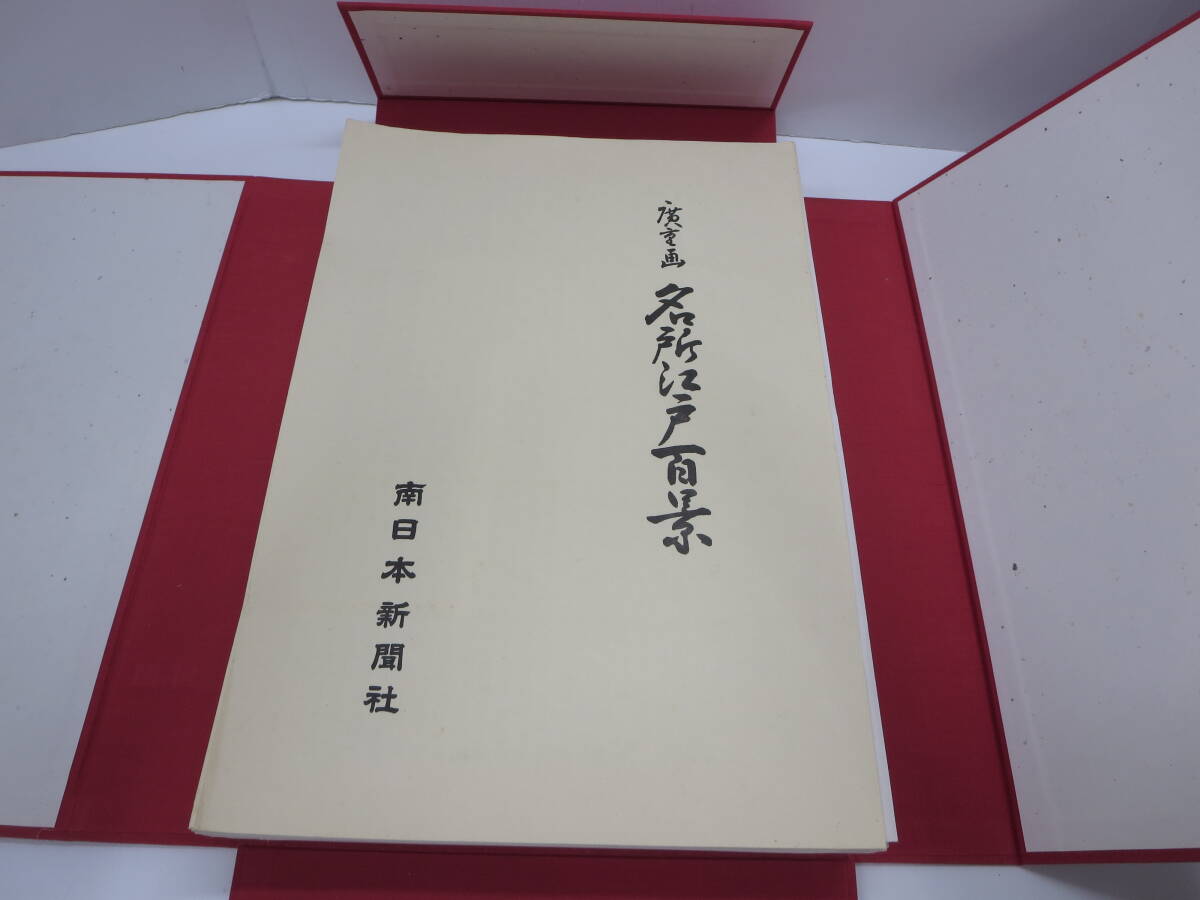 廣重画 名所江戸百景
南日本新聞社